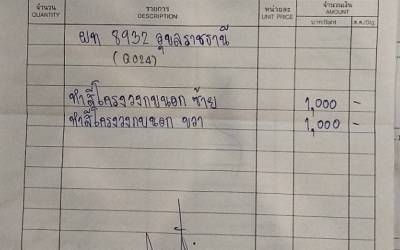 จำนวน รายการ หน่วยละ จำนวนเงิน
QUANTITY DESCRIPTION UNIT PRICE AMOUNT
ผท 8932 อุบลราชธานี
(Q024)
ทำสี โครงวงกบนอก ซ้าย 1,000 -
ทำสี โครงวงกบนอก ขวา 1,000 -